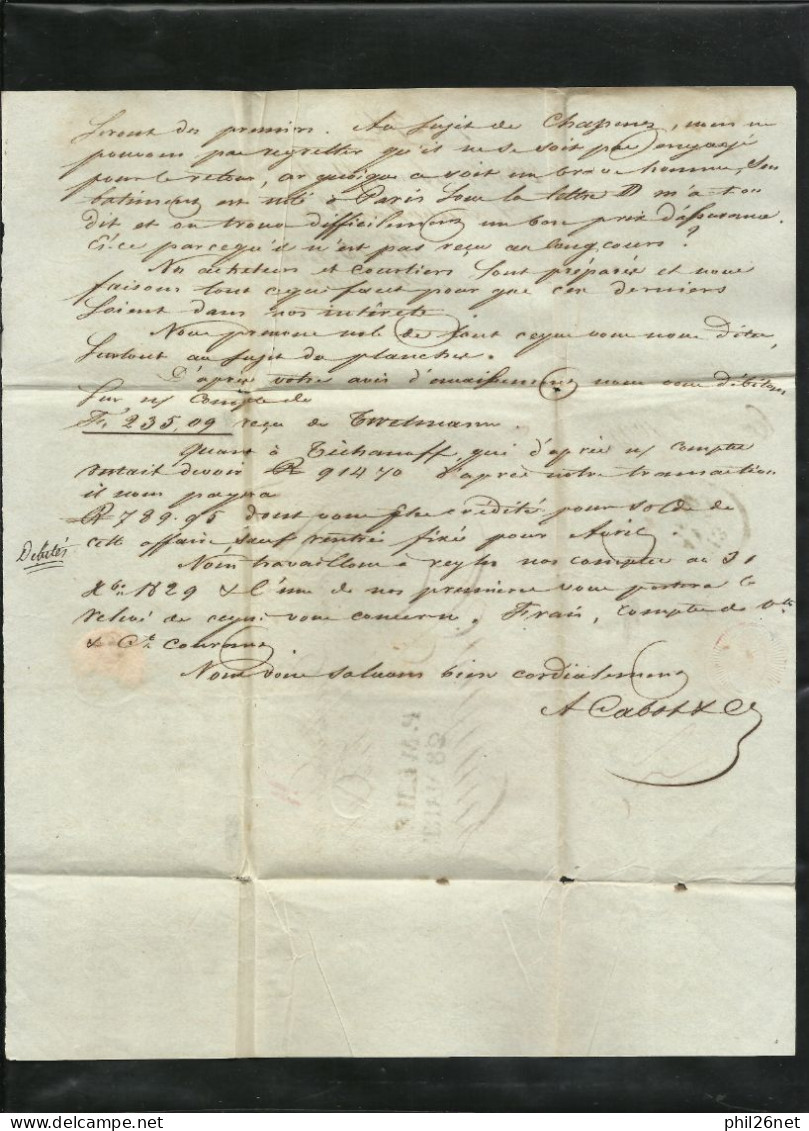 seront des premiers. Au sujet de Chapman, nous ne
pouvons pas regretter qu'il ne se soit pas engagé
pour le retour, car quoique ce soit un brave homme, son
batiment est noté à Paris sous la lettre D m'a t'on
dit et on trouve difficilement un bon prix d'assurance.
Est-ce parcequ'il n'est pas reçu au long cours?
Nos acheteurs et courtiers sont préparés et nous
faisons tout ce qui faut pour que ces derniers
soient dans nos intérêts.
Nous prenons note de tout ce que vous nous dites,
surtout au sujet des planches.
D'après votre avis d'encaissement nous vous débitons
sur n/ Compte de
Fs 235,09 reçu de Twelmann.
Quant à Tichanoff, qui d'après n/ compte
restait devoir R 914 70 d'après notre transaction
il nous payera
R 789.95 dont vous êtes crédités pour solde de
cette affaire sauf rentrée fixée pour Avril.
Débités
Nous travaillons à regler nos comptes au 31
Xbre 1829 & l'une de nos premières vous portera le
relevé de ce qui vous concerne. Frais, Compte de Vte
& Ct. courant
Nous vous saluons bien cordialement
A Cabot & Co
www.delcampe.net
phil26net